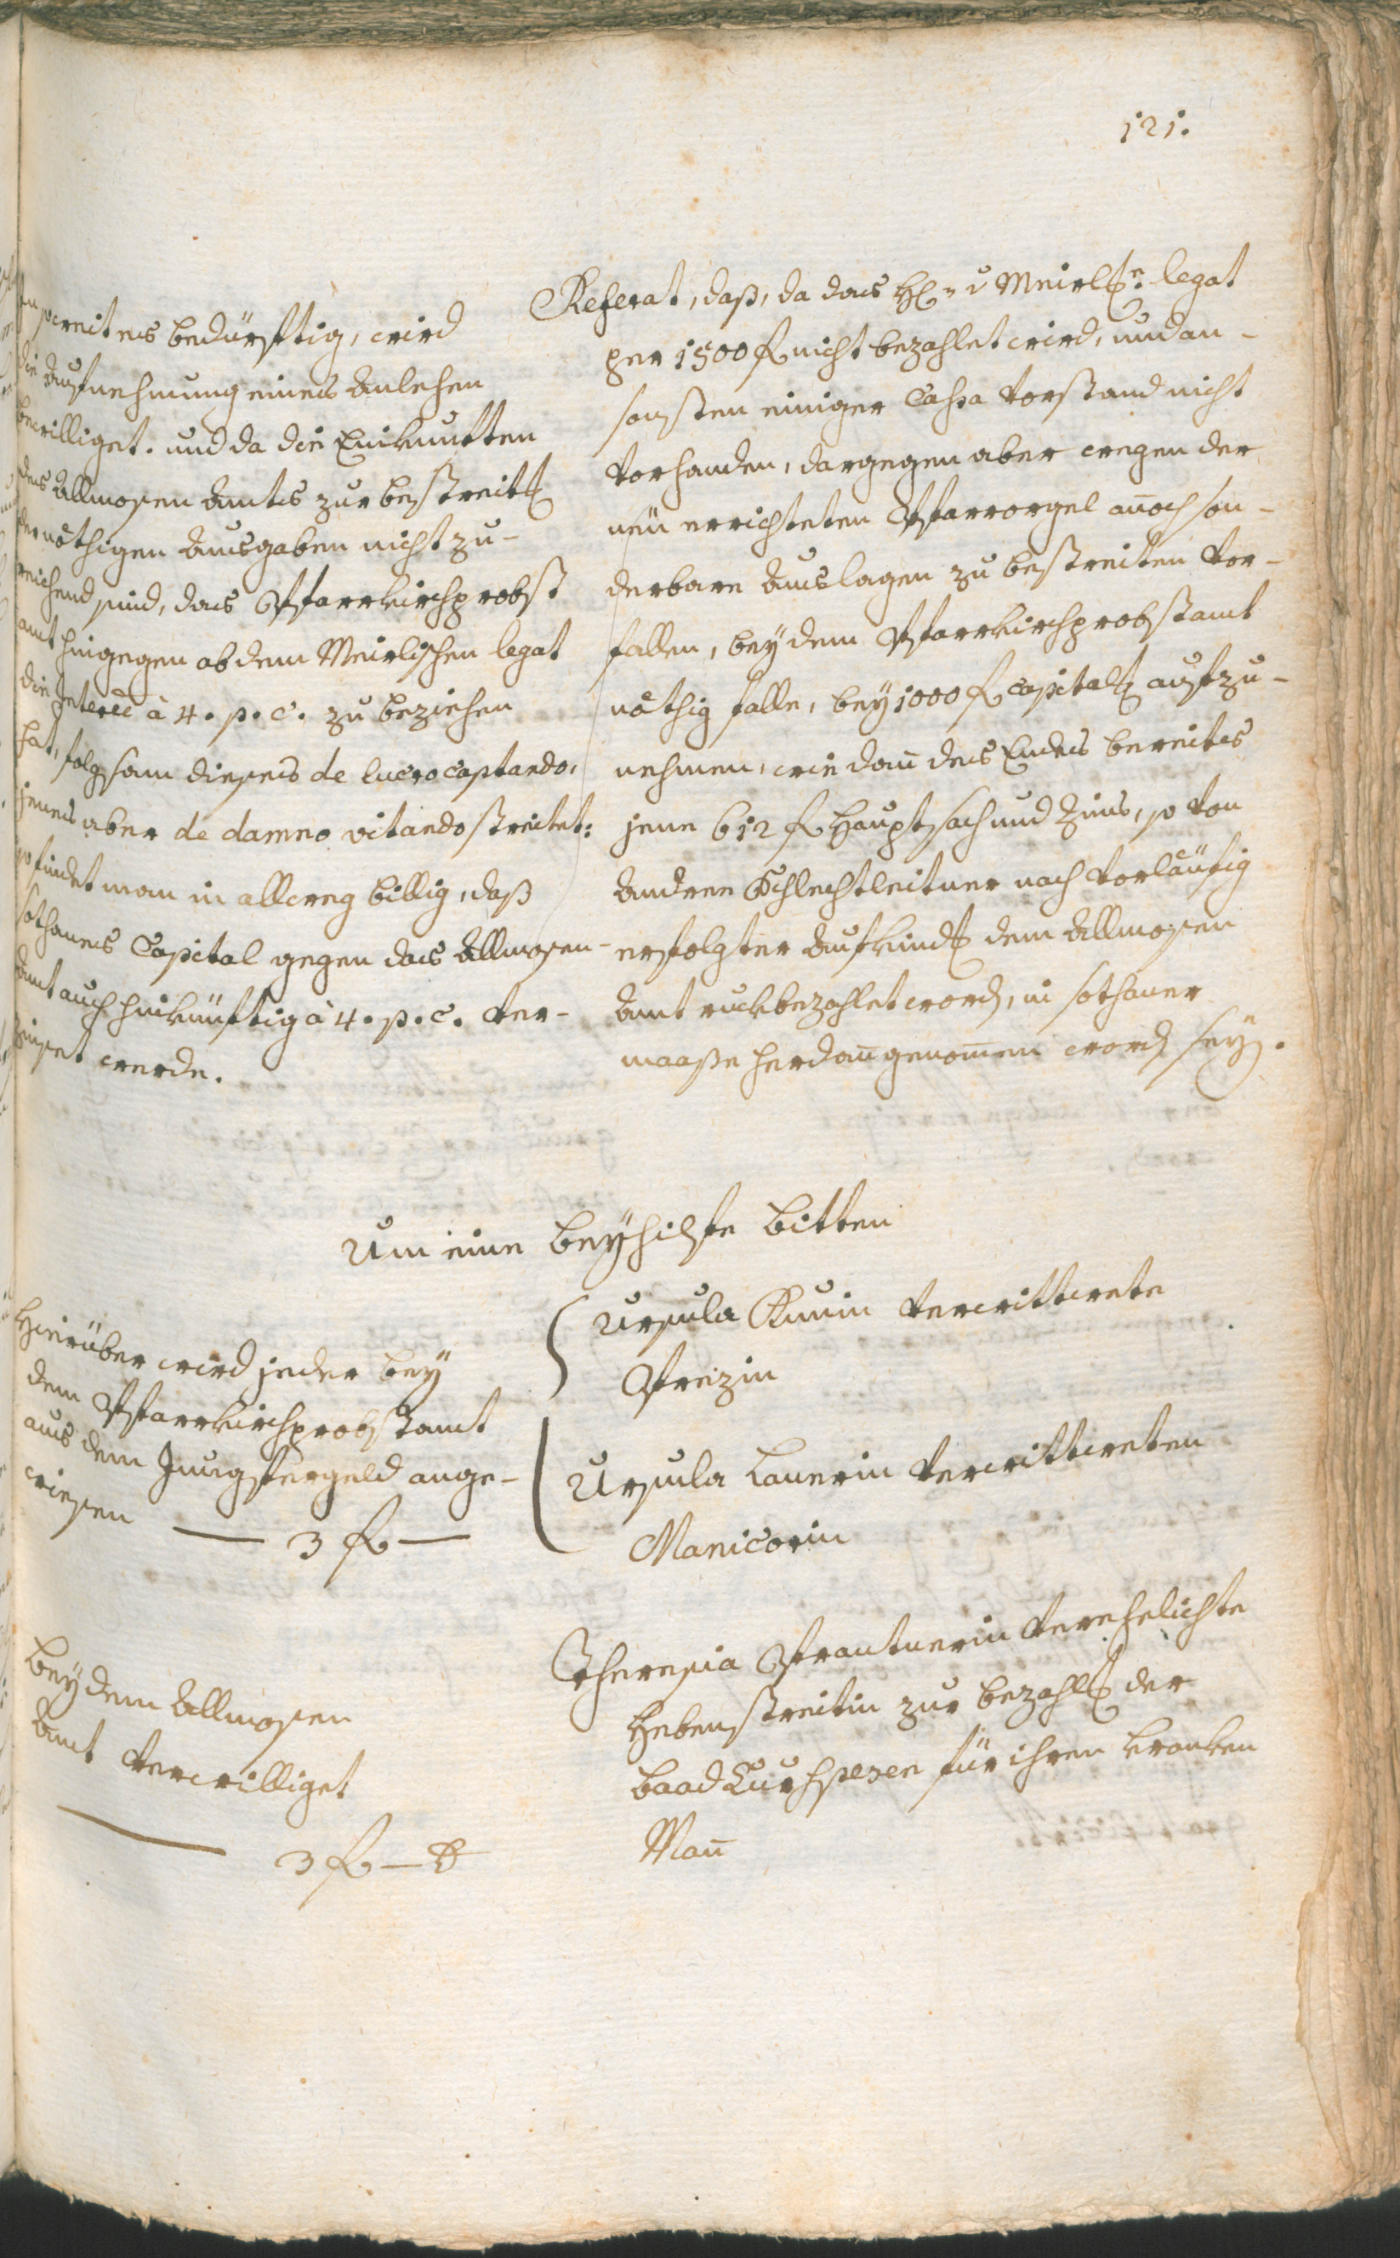 121.
Referat, daß, da das H: v Meirl: legat
per 1500 f nicht bezahlet wird, und an-
sonsten einiger Cassa Vorstand nicht
vorhanden, dargegen aber wegen der
neü errichteten Pfarrorgel añoch son-
derbare Auslagen zu bestreiten vor-
fallen, bey dem Pfarrkirchprobstamt
nöthig falle, bey 1000 f Capital aufzu-
nehmen, wie dañ des Endes bereites
jene 612 f Hauptsach und Zins, so von
Andree Schlechtleitner nach vorläufig
erfolgter Aufkind dem Allmosen
Amt ruckbezahlet word, in sothaner
maaße herdañ genom̃en word sey.
In soweit es bedürftig, wird
die Aufnehmung eines Anlehen
bewilliget. und da die Einkunften
des Allmosen Amtes zur bestreit
der nöthigen Ausgaben nicht zu-
reichend sind, das Pfarrkirchprobst
amt hingegen ab dem Meirlischen legat
die Interee à 4. p. c. zu beziehen
hat, folgsam dieses de lucro captando,
jenes aber de damno vitando streitet:
so findet man in allweg billig, daß
sothanes Capital gegen das Allmosen-
Amt auch hinkünftig à 4. p. c. ver-
zinset werde.
Um eine beyhilfe bitten
Ursula Kunin verwittwete
Preizin
Ursula Lanerin verwittweten
Manicorin
Hierüber wird jeder bey
dem Pfarrkirchprobstamt
aus dem Jungfergeld ange-
wiesen
— 3 f —
Theresia Prantnerin verehelichte
Hebenstreitin zur bezahl der
baad Kurspesen für ihren kranken
Mañ
bey dem Allmosen
Amt verwilliget
— 3 f —